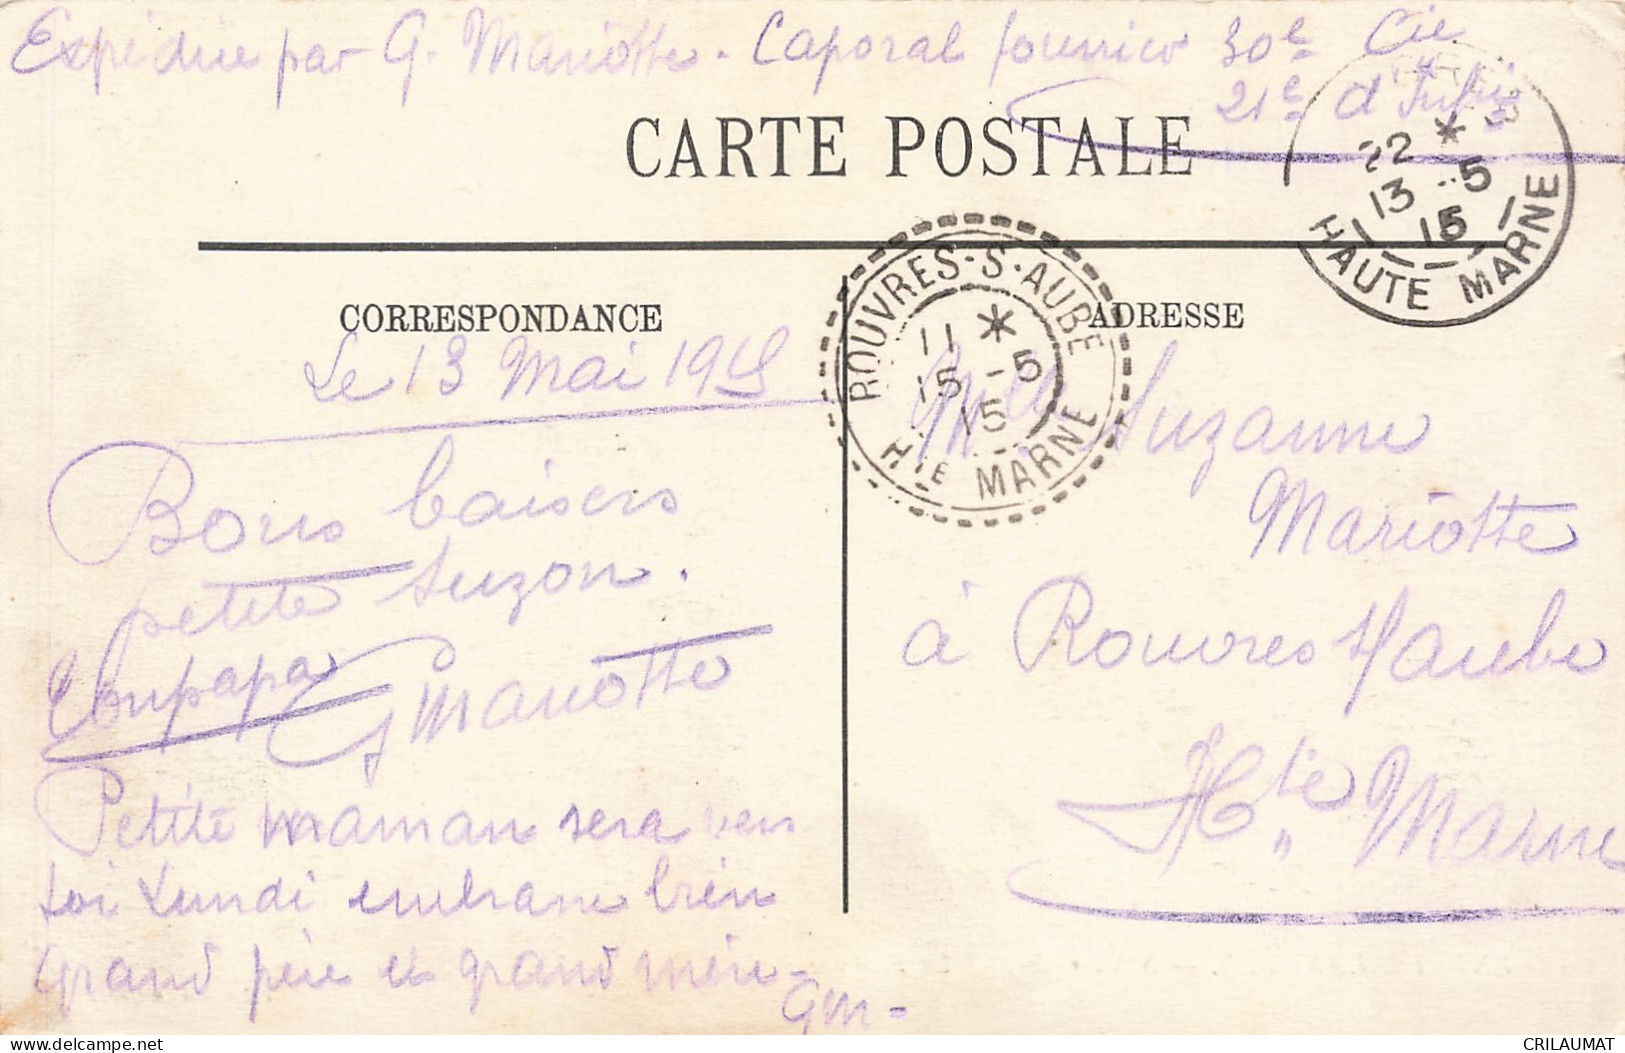 Expédiée par G. Mariotte - Caporal fourrier 30e Cie
21e d'Inf
CARTE POSTALE
22 *
13 - 5
15
HAUTE MARNE
ROUVRES-S-AUBE
11 *
15 - 5
15
H.TE MARNE
CORRESPONDANCE
Le 13 Mai 1915
Bons baisers
petite Suzon.
Ton papa
G Mariotte
Petite maman sera vers
toi Lundi embrasse bien
Grand père et grand mère -
GM -
ADRESSE
Mlle Suzanne
Mariotte
à Rouvres s/ Aube
Hte Marne
delcampe.net
CRILAUMAT